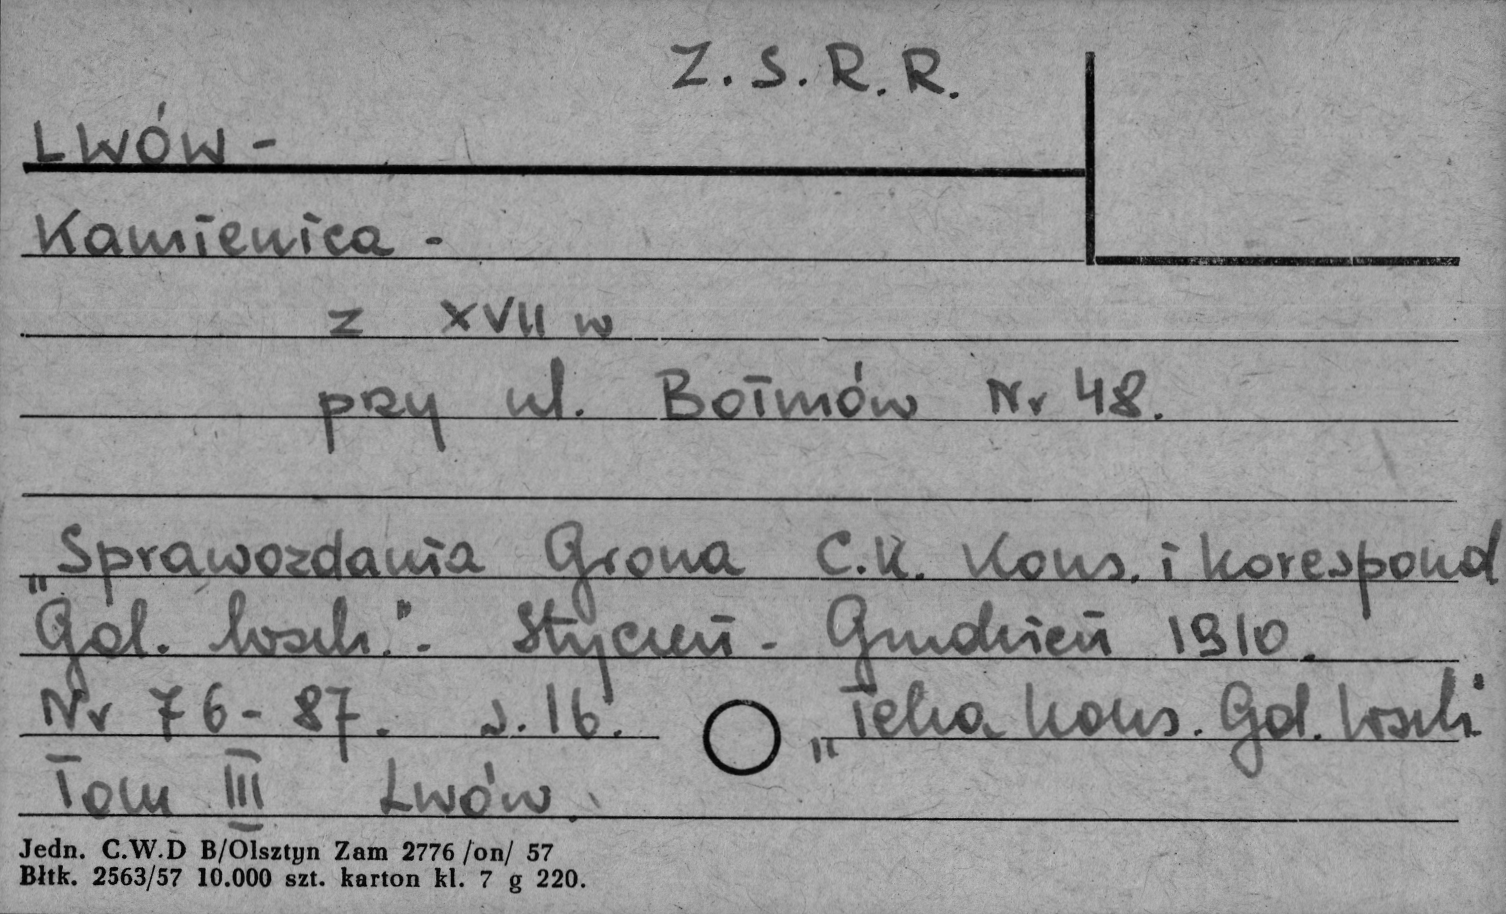 Z.S.R.R.
LWÓW -
Kamienica -
z XVII w
przy ul. Boimów Nr 48.
„Sprawozdania Grona C.K. Kons. i korespond
Gal. wsch." - Styczeń - Grudzień 1910.
Nr 76-87. s. 16. „Teka Kons. Gal. wsch."
Tom III Lwów.
Jedn. C.W.D B/Olsztyn Zam 2776 /on/ 57
Błtk. 2563/57 10.000 szt. karton kl. 7 g 220.